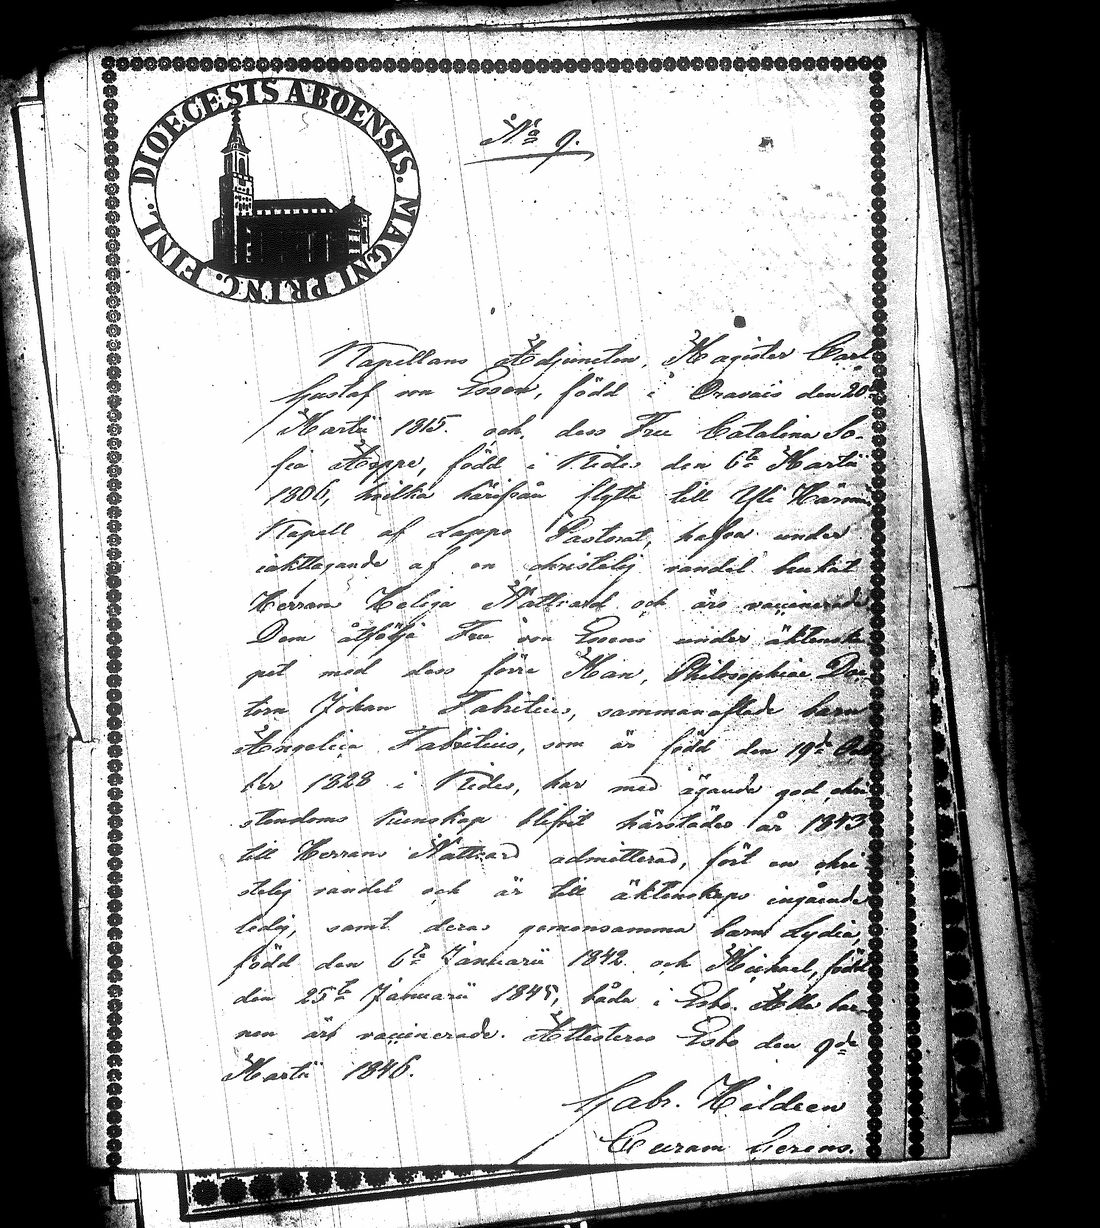 DIOECESIS ABOENSIS. MAGNI PRINC. FINL.
No 9.
Kapellans Adjuncten, Magister Carl
Gustaf von Essen, född i Oravais den 20de
Martii 1815. och dess Fru Catalina So-
fia Hoppe, född i Kides den 6te Martii
1806, hvilka härifrån flytta till Yli Härmä
Kapell af Lappo Pastorat, hafva under
iakttagande af en christelig vandel brukat
Herrans Heliga Nattvard och äro vaccinerade.
Dem åtfölja Fru von Essens under äktenska-
pet med dess förre Man, Philosophiae Doc-
torn Johan Fabritius, sammanaflade barn
Angelica Fabritius, som är född den 19de
ber 1828 i Kides, har med ägande god chri-
stendoms kunskap blifvit härstädes år 1843
till Herrans Nattvard admitterad, fört en chri-
stelig vandel och är till äktenskaps ingående
ledig, samt deras gemensamma barn Lydia,
född den 6te Januarii 1842. och Michael, född
den 25te Januarii 1845, båda i Esbo. Alla bar-
nen äro vaccinerade. Attesteras Esbo den 9de
Martii 1846.
Gabr. Hildeen
Curam Gerens.